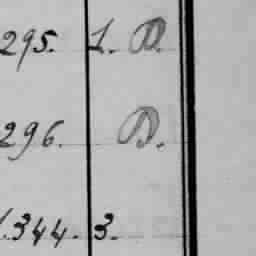 295. 1. D.
296. D.
1.344. 3.